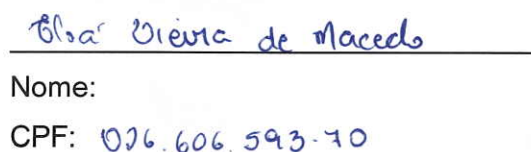 Vieira de Macedo
Nome:
CPF: 026.606.593-70